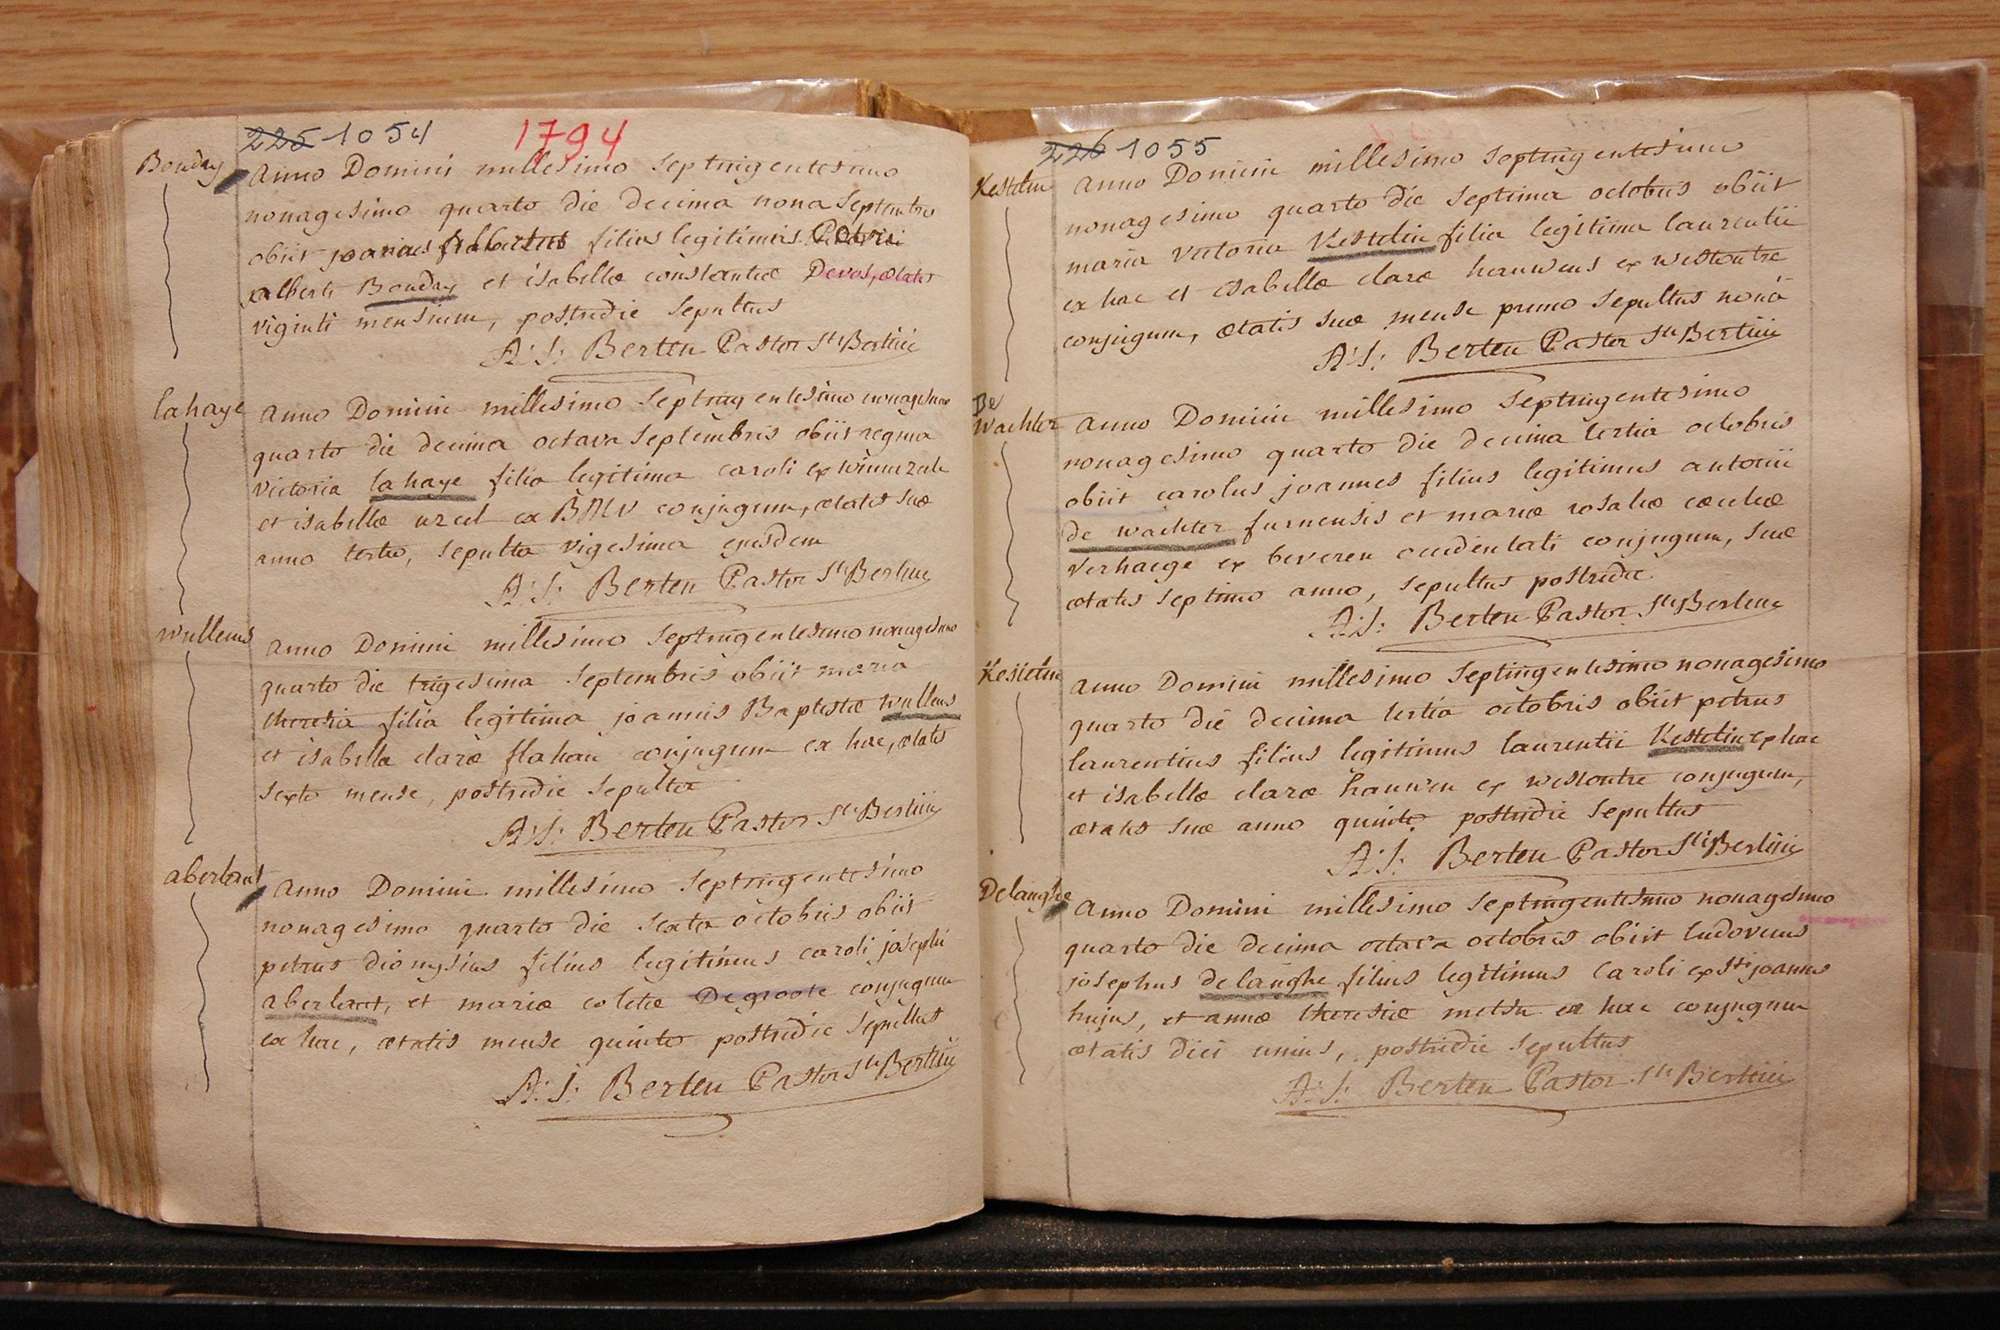 225 1054
1794
Bouday
anno Domini millesimo septingentesimo
nonagesimo quarto die decima nona septembris
obiit joannes filius legitimus
alberti Bouday et isabellæ constantiæ Devos, ætatis
viginti mensium, postridie sepultus
A: J: Berten Pastor Sti Bertini
la haye
anno Domini millesimo septingentesimo nonagesimo
quarto die decima octava septembris obiit regina
victoria la haye filia legitima caroli ex winnezele
et isabellæ urcel ex BMV conjugum, ætatis suæ
anno tertio, sepulta vigesima ejusdem
A: J: Berten Pastor Sti Bertini
wullens
anno Domini millesimo septingentesimo nonagesimo
quarto die trigesima septembris obiit maria
theresia filia legitima joannis Baptistæ wullens
et isabella claræ flahau conjugum ex hac, ætatis
sexto mense, postridie sepulta
A: J: Berten Pastor Sti Bertini
aberlant
anno Domini millesimo septingentesimo
nonagesimo quarto die sexta octobris obiit
petrus dionysius filius legitimus caroli josephi
aberlant, et mariæ coletæ Degroote conjugum
ex hac, ætatis mense quinto postridie sepultus
A: J: Berten Pastor Sti Bertini
226 1055
Kestelin
anno Domini millesimo septingentesimo
nonagesimo quarto die septima octobris obiit
maria victoria Kestelin filia legitima laurentii
ex hac et isabellæ claræ hauwens ex westoutre
conjugum, ætatis suæ mense primo sepultus nonâ
A: J: Berten Pastor Sti Bertini
De
Wachter
anno Domini millesimo septingentesimo
nonagesimo quarto die decima tertia octobris
obiit carolus joannes filius legitimus antonii
de wachter furnensis et mariæ rosaliæ cæciliæ
verhaege ex beveren occidentali conjugum, suæ
ætatis septimo anno, sepultus postridie.
A: J: Berten Pastor Sti Bertini
Kestelin
anno Domini millesimo septingentesimo nonagesimo
quarto die decima tertia octobris obiit petrus
laurentius filius legitimus laurentii Kestelin ex hac
et isabellæ claræ hauwen ex westoutre conjugum,
ætatis suæ anno quinto postridie sepultus
A: J: Berten Pastor Sti Bertini
Delanghe
anno Domini millesimo septingentesimo nonagesimo
quarto die decima octava octobris obiit ludovicus
josephus delanghe filius legitimus Caroli ex sti joannis
hujus, et annæ theresiæ metsu ex hac conjugum
ætatis diei unius, postridie sepultus
A: J: Berten Pastor Sti Bertini